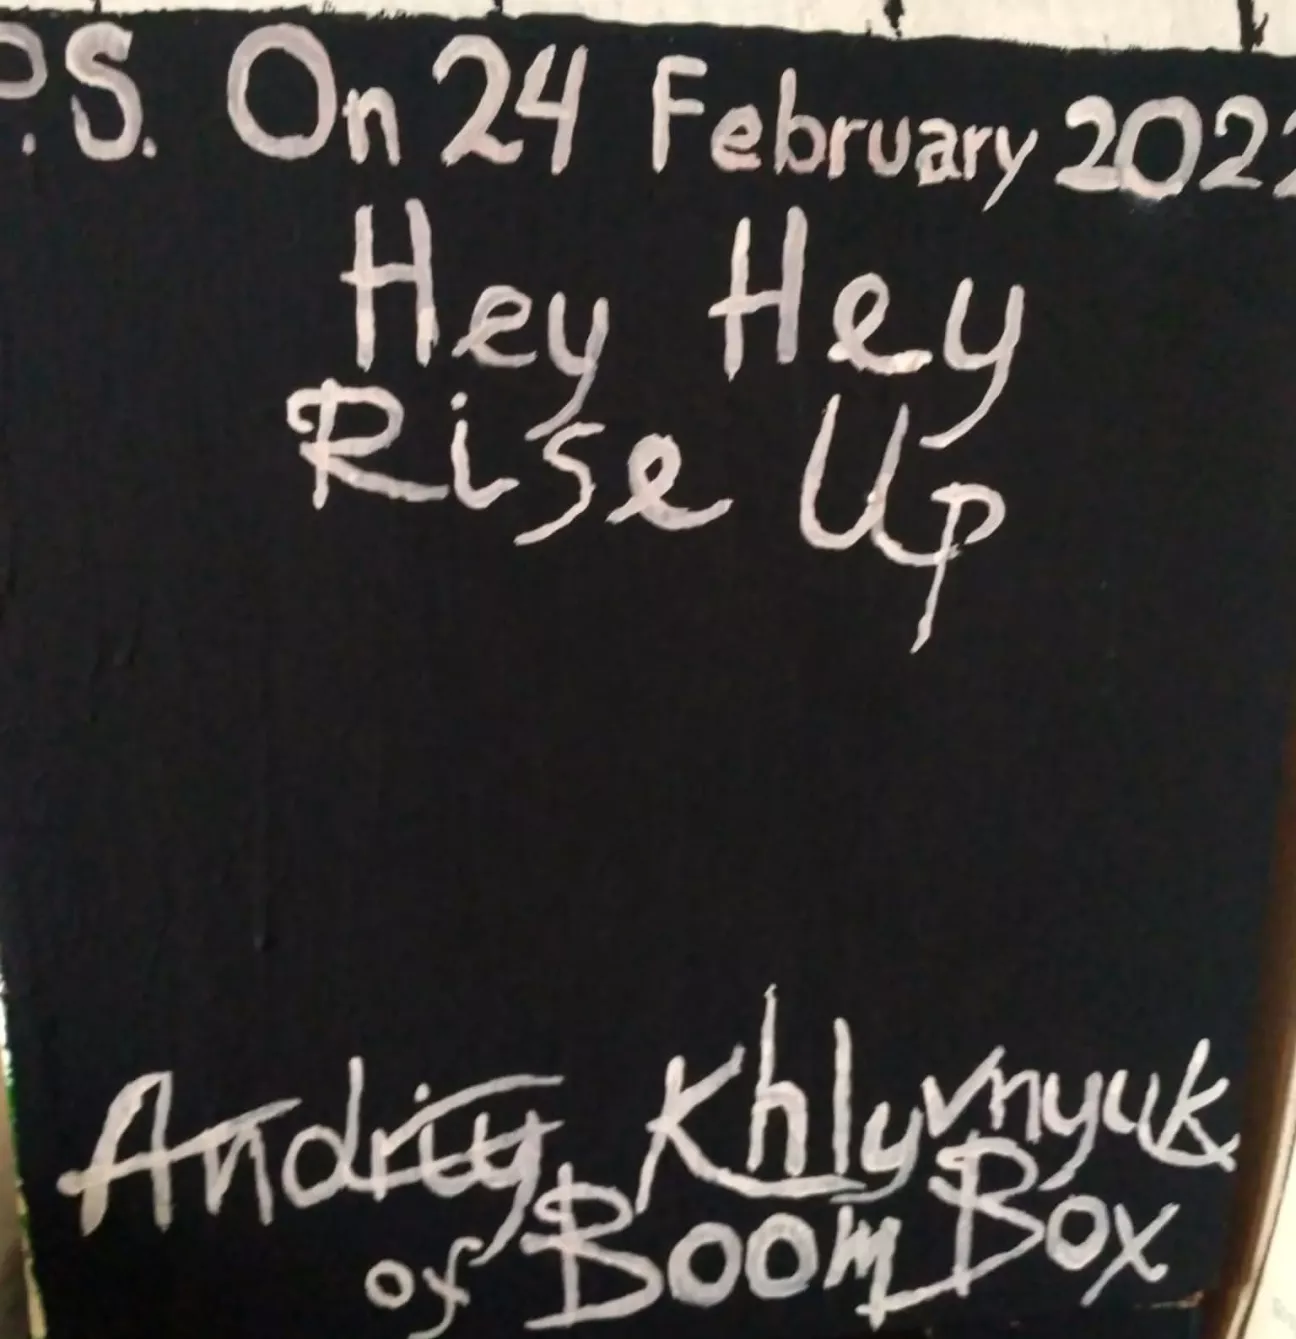 P.S. On 24 February 2022
Hey Hey
Rise Up
Andriy Khlyvnyuk
of BoomBox